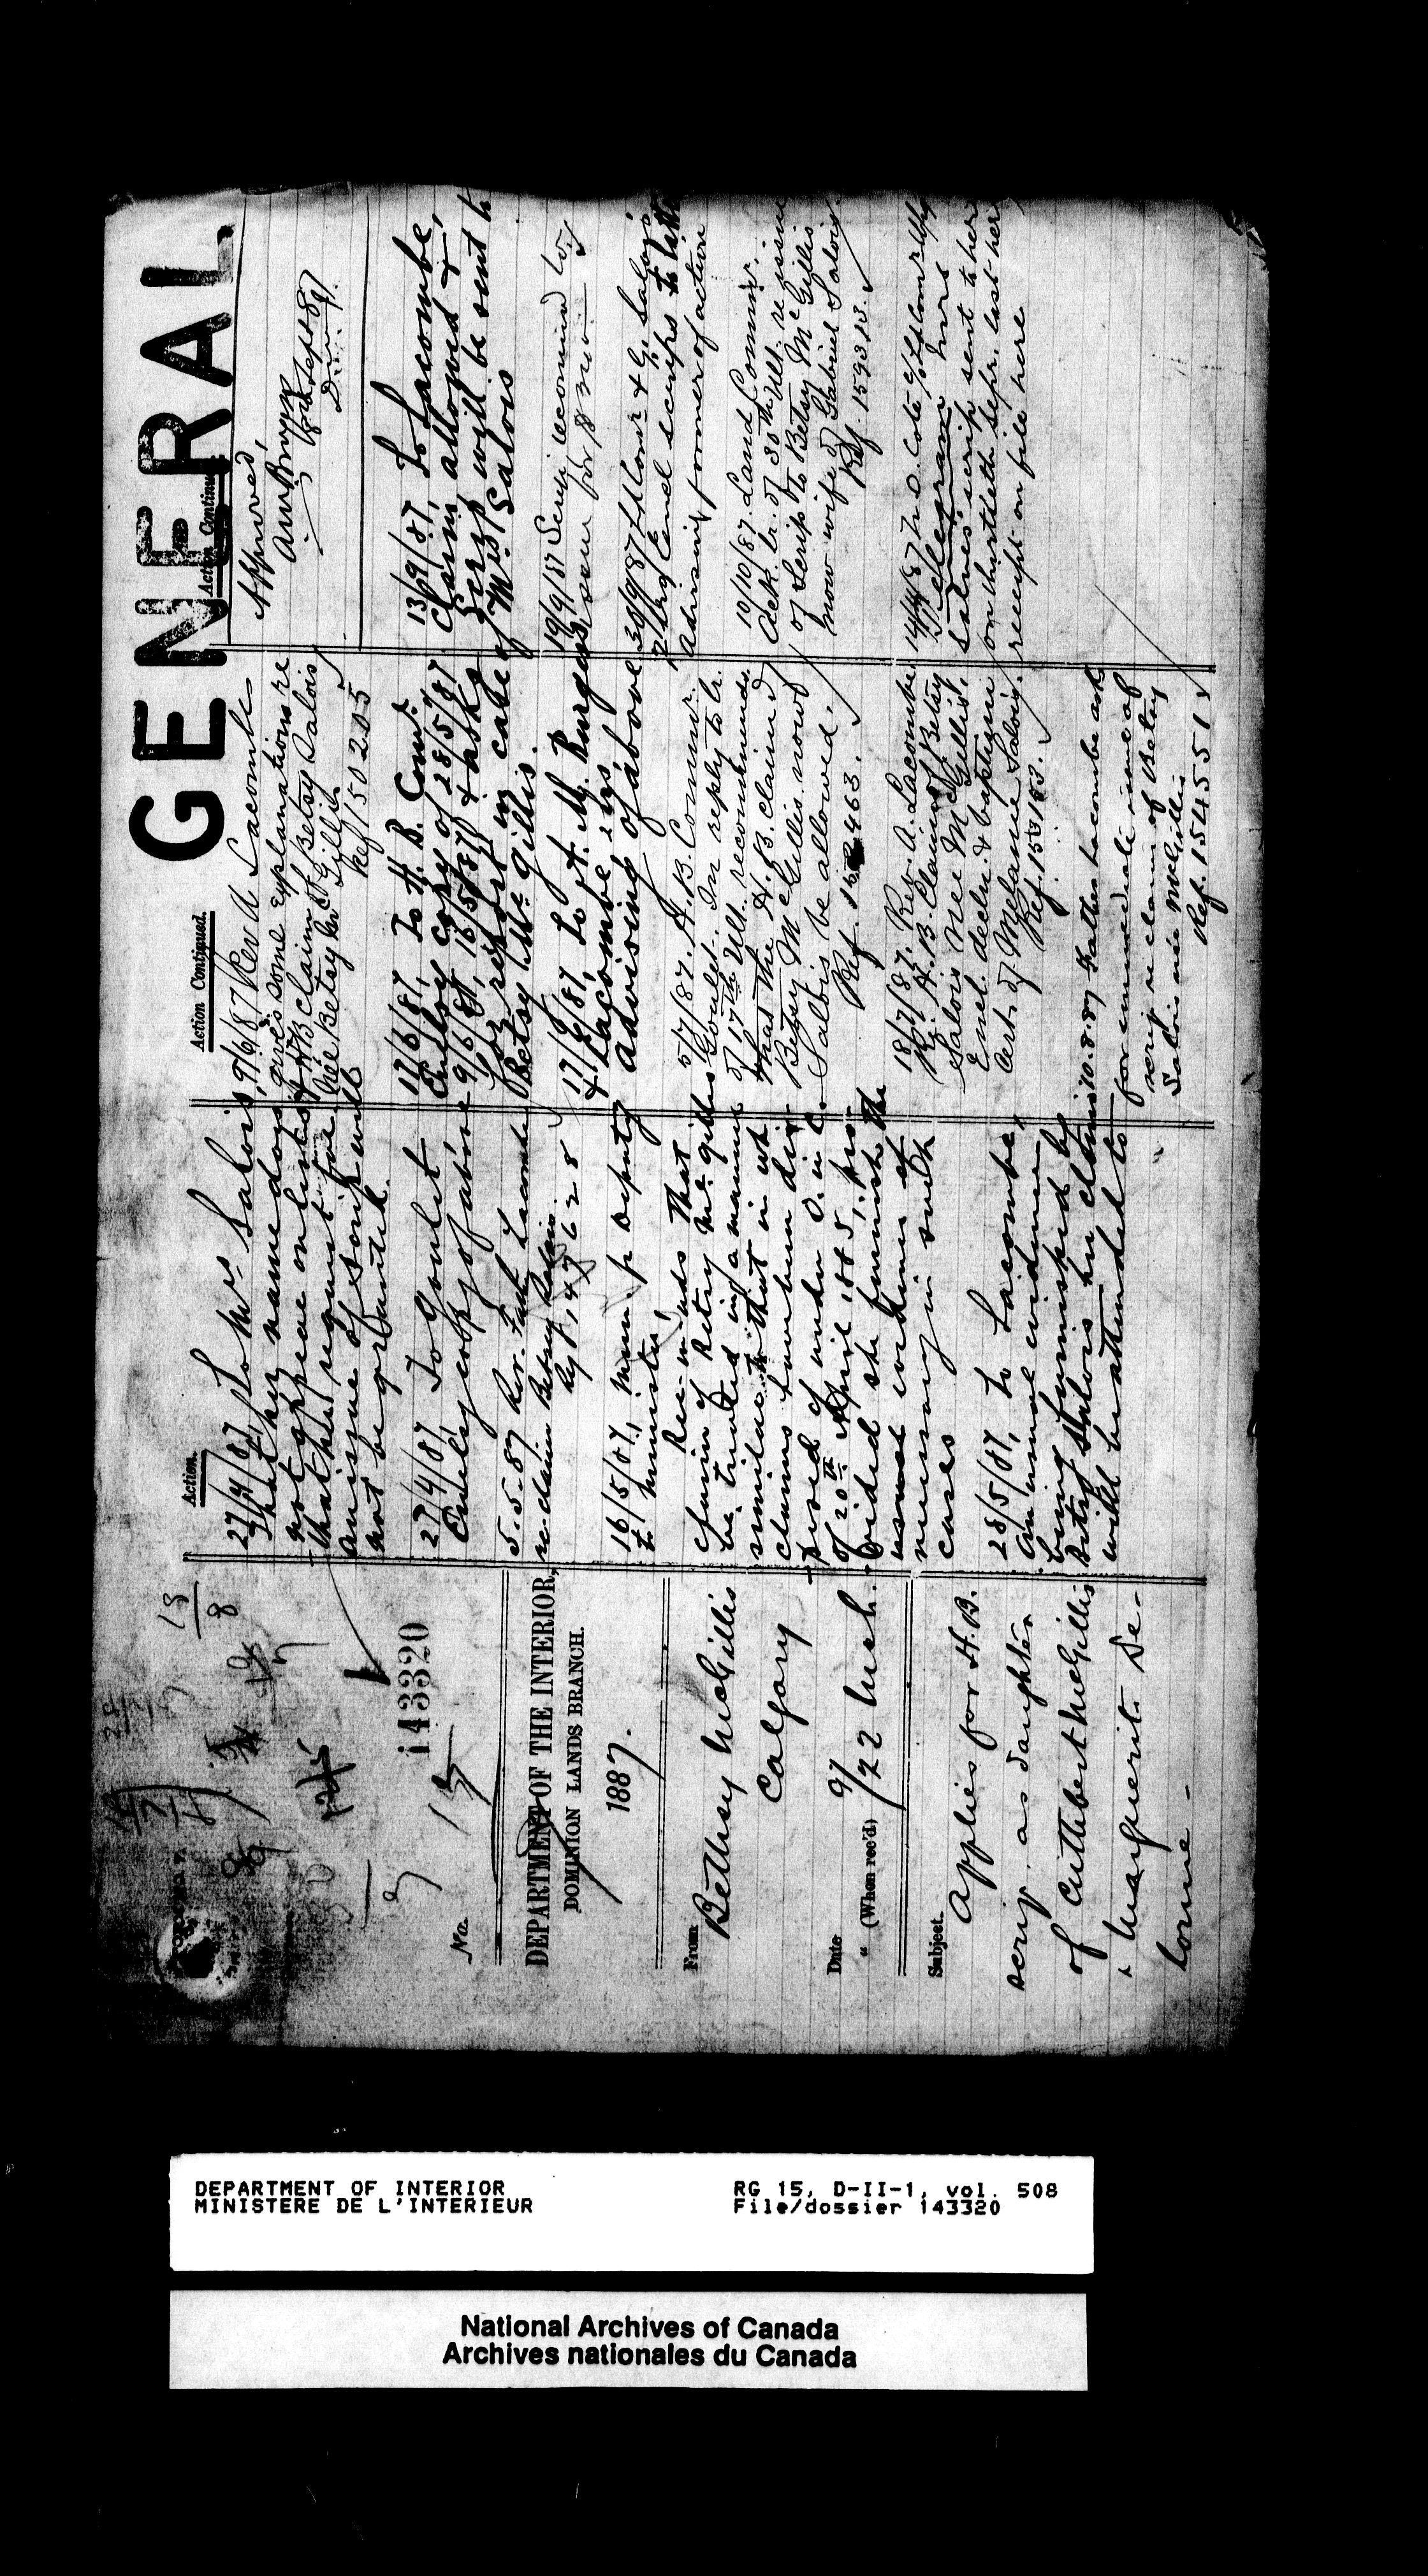 GENERAL
No. 143320
DEPARTMENT OF THE INTERIOR,
DOMINION LANDS BRANCH.
1887.
From
Betsey McGillis
Calgary
Date 9/
" (When rec'd) /22 Mch.
Subject.
Applies for H.B.
scrip as daughter
of Cuthbert McGillis
& Marguerite De-
lorme -
Action.
27/4/87, To Mrs Salois,
That her name does
not appear on lists &
that her request for
an issue of scrip will
not be granted.
27/4/87 To Goulet
Encls copy of above
5.5.87 Rev. Fath. Lacombe
re claim Betsy Salois
Ref 147628
16/5/87, Mem. fr Deputy
to Minister,
Recm'nds That
claim of Betsy McGillis
be treated in a manner
similar to that in wh
claims have been dis-
posed of under O. in C.
of 20th April 1885, pro-
vided she furnish the
usual evidence
necessary in such
cases
28/5/87, To Lacombe,
on usual evidence
being furnished by
Betsy Salois her claim
will be attended to
Action Continued.
9/6/87 Rev A Lacombe
gives some explanations re
H B claim of Betsy Salois
née Betsy McGillis
Ref 150205
17/6/87, To H. B. Comr.
Encls copy of 28/5/87
9/6/87, 16/5/87 & asks
for report in case of
Betsy McGillis.
17/6/87, To A. M. Burgess
& Lacombe, 2 ls,
advising of above
5/7/87. H.B. Commr.
Goulet. In reply to lr.
of 17th Ult. recommends
that the H.B. claim of
Betsy McGillis now
Salois be allowed.
Ref.
18/7/87. Rev. A. Lacombe.
Re. H.B. Claim of Betsy
Salois née McGillis.
Encl. decln. & baptism
Cert. of Melanie Salois.
Ref. 153183.
10.8.87 Father Lacombe asks
for immediate issue of
scrip re claim of Betsy
Salois née McGillis
Ref. 154551
Action Continued.
Approved,
Sept 87
13/9/87, To Lacombe,
Claim allowed &
Scrip will be sent to
Mrs Salois
19/9/87 Scrip
for $
30/9/87 & G. Salois
2 lrs, Encl scrips to latter
Advising former of action
10/10/87. Land Commr.
Ack lr. of 30th Ult. re issue
of Scrip to Betsy McGillis
now wife of Gabriel Salois.
Ref. 159313.
Telegram
Salois' scrip sent to her
on thirtieth Sepr. last her
receipt on file here
DEPARTMENT OF INTERIOR
MINISTERE DE L'INTERIEUR
RG 15, D-II-1, vol. 508
File/dossier 143320
National Archives of Canada
Archives nationales du Canada